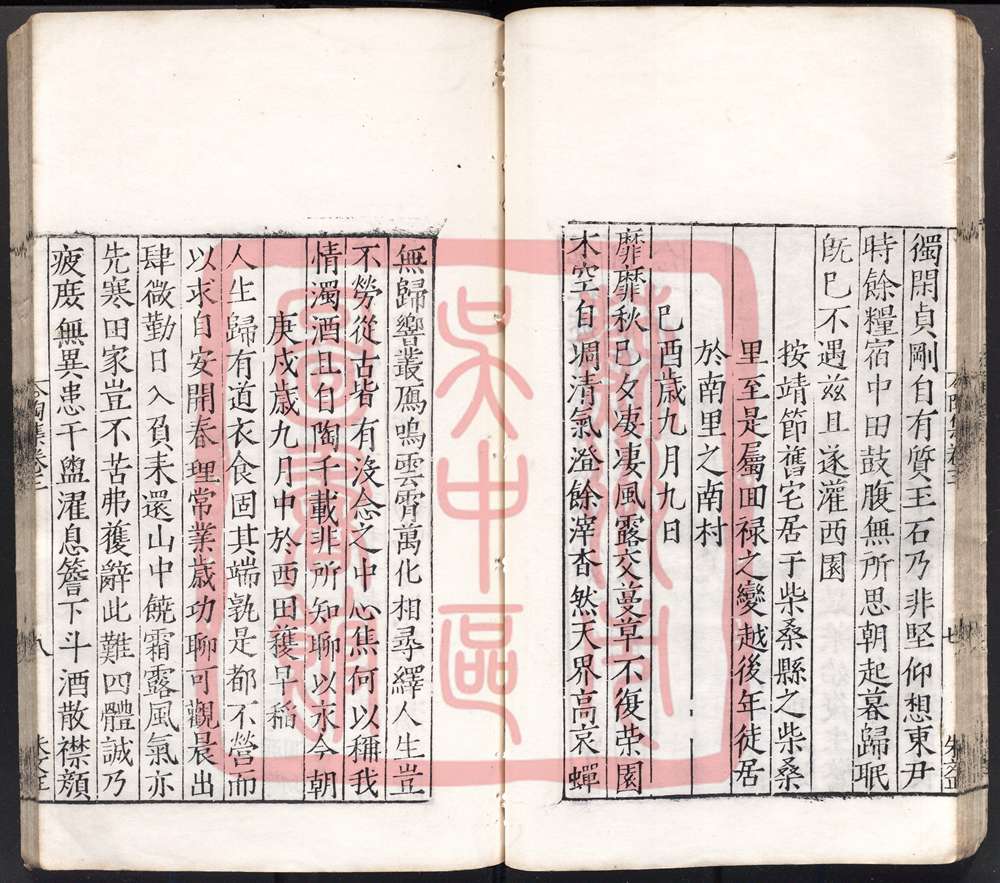 獨閑貞剛自有質玉石乃非堅仰想東尹
時餘糧宿中田鼓腹無所思朝起暮歸眠
旣已不遇茲且遂灌西園
按靖節舊宅居于柴桑縣之柴桑
里至是屬囬祿之變越後年徒居
於南里之南村
已酉歲九月九日
靡靡秋已夕凄凄風露交蔓草不復荣園
木空自凋清氣澄餘滓杳然天界高哀蟬
七
無歸響叢鴈鳴雲霄萬化相尋繹人生豈
不勞從古皆有沒念之中心焦何以稱我
情濁酒且自陶千載非所知聊以永今朝
庚戍歲九月中於西田穫早稻
人生歸有道衣食固其端孰是都不營而
以求自安開春理常業歲功聊可觀晨出
肆微勤日入負耒還山中饒霜露風氣亦
先寒田家豈不苦弗獲辭此難四體誠乃
疲庻無異患干盥濯息簷下斗酒散襟顔
陶集卷三
八
蘇州市
吳中區
圖書館